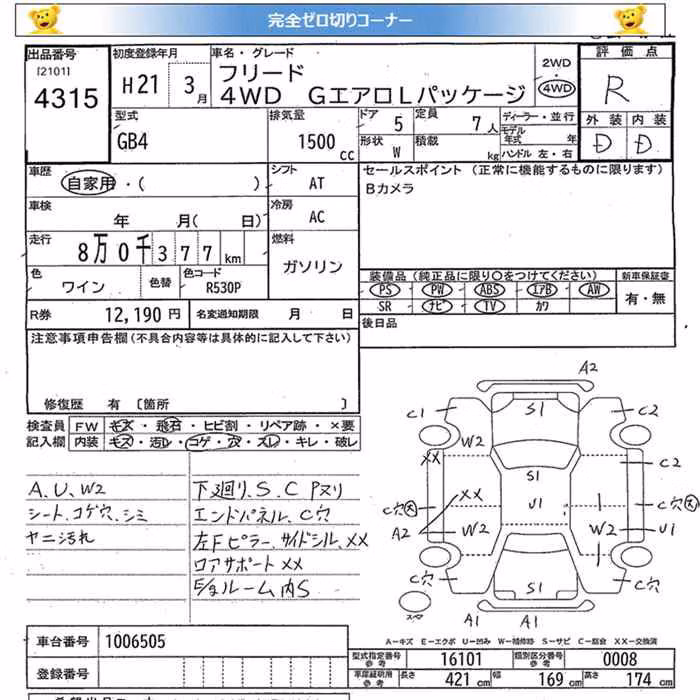 完全ゼロ切りコーナー
出品番号 初度登録年月 車名・グレード 評価点
[2101] フリード 2WD
4315 H21 3月 4WD GエアロLパッケージ 4WD R
型式 排気量 ドア 5 定員 7人 ディーラー・並行 外装 内装
モデル年式 年
GB4 1500cc 形状 W 積載 kg ハンドル 左・右 D D
車歴 シフト セールスポイント (正常に機能するものに限ります)
自家用・( ) AT Bカメラ
車検 冷房
年 月( 日) AC
走行 燃料
8万0千377km ガソリン
色 色替 色コード 装備品 (純正品に限り○をつけてください) 新車保証書
ワイン R530P PS PW ABS エアB AW 有・無
SR ナビ TV カワ
R券 12,190円 名変通知期限 月 日 後日品
注意事項申告欄(不具合内容等は具体的に記入して下さい)
修復歴 有 〔箇所 〕
検査員 FW キズ・飛石・ヒビ割・リペア跡・×要
記入欄 内装 キズ・汚レ・コゲ・穴・スレ・キレ・破レ
A.U、W2
シート、コゲ穴、シミ
ヤニ汚れ
下廻リ、S、C Pヌリ
エンドパネル、C穴
左Fピラー、サイドシル、XX
ロアサポートXX
E/gルーム内S
A2
C1 S1 C2
W2
XX C2
S1
XX U1
C穴 C穴
A2 W2 W2 U1
C穴 S1 C穴
スペヤ A1 A1
A−キズ E−エクボ U−凹み W−補修跡 S−サビ C−腐食 XX−交換済
車台番号 1006505
型式指定番号 参考 16101 類別区分番号 参考 0008
登録番号
車庫証明用 参考 長さ 421cm 幅 169cm 高さ 174cm